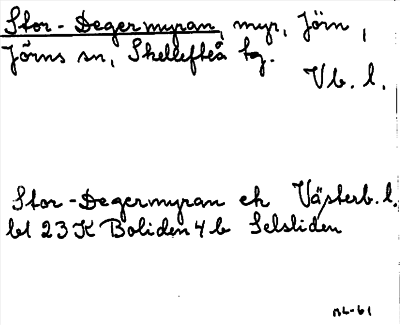 Stor-Degermyran, myr, Jörn,
Jörns sn, Skellefteå tg.
Vb. l.
Stor-Degermyran ek Västerb. l.
bl 23K Boliden 4b Selsliden